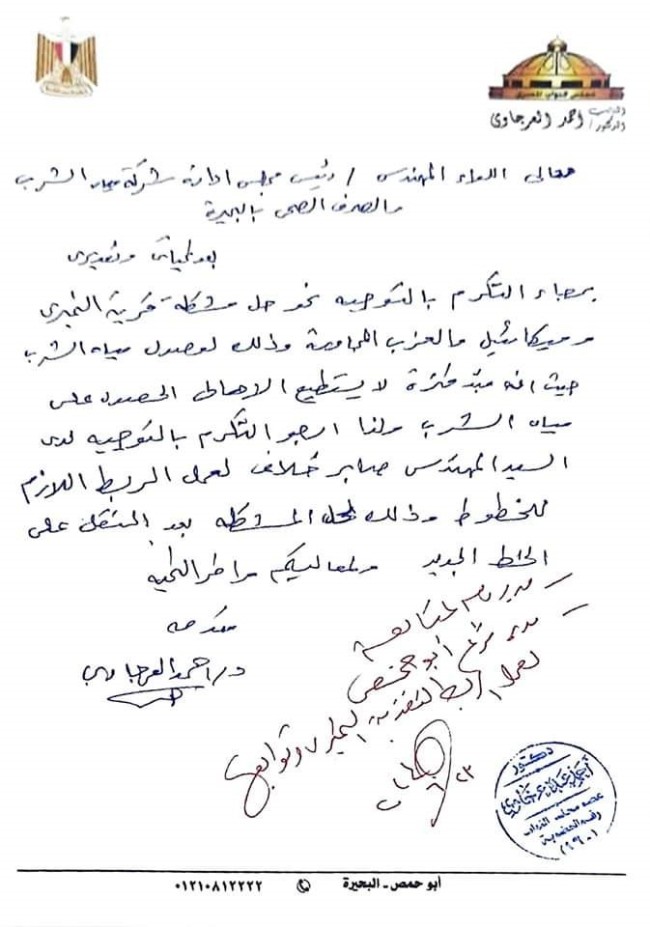 مجلس النواب المصري
النائب
الدكتور/ احمد العرجاوى
معالى اللواء المهندس / رئيس مجلس ادارة شركة مياه الشرب
والصرف الصحى بالبحيرة
بعد تحياتى وتقديرى
برجاء التكرم بالتوجيه نحو حل مشكلة قرية النجيرى
وميكائيل والعزب المجاورة وذلك لوصول مياه الشرب
حيث انه منذ فترة لا يستطيع الاهالى الحصول على
مياه الشرب ولذا ارجو التكرم بالتوجيه لدى
السيد المهندس صابر خلاف لعمل الربط اللازم
للخطوط وذلك لحل المشكله بعد النقل على
الخط الجديد ولمعاليكم وافر التحيه
مقدمه
د/ احمد العرجاوى
مدير عام المتابعة
مدير فرع أبو حمص
لعمل الربط لتغذية وتوابعها
دكتور
عضو مجلس النواب
رقم العضوية
أبو حمص - البحيرة ٠١٢١٠٨١٢٢٢٢